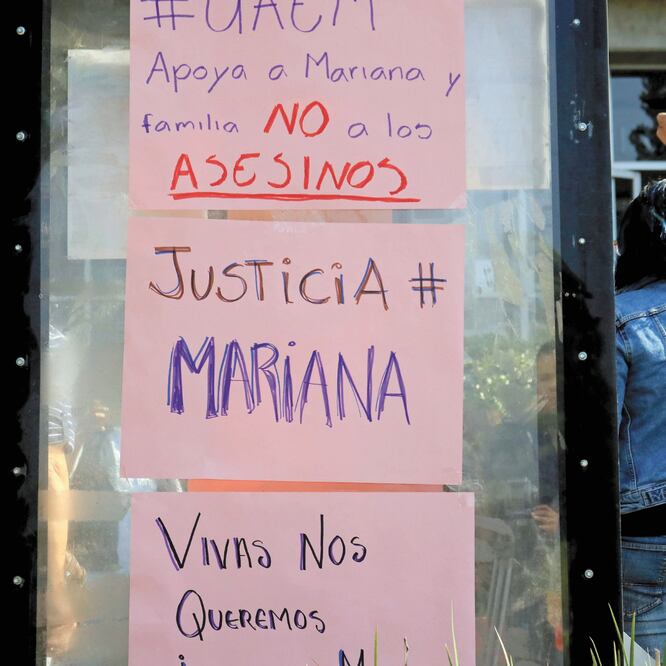 #UAEM
Apoya a Mariana y
familia NO a los
ASESINOS
JUSTICIA #
MARIANA
VIVAS NOS
QUEREMOS